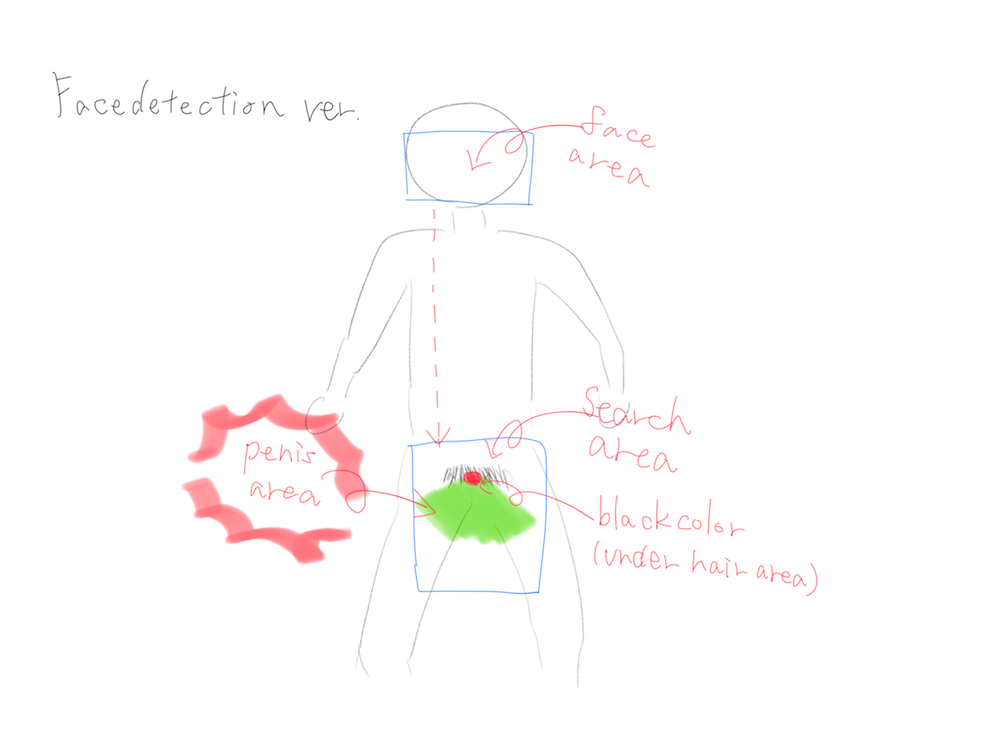 Facedetection ver.
face
area
Search
area
penis
area
black color
(under hair area)